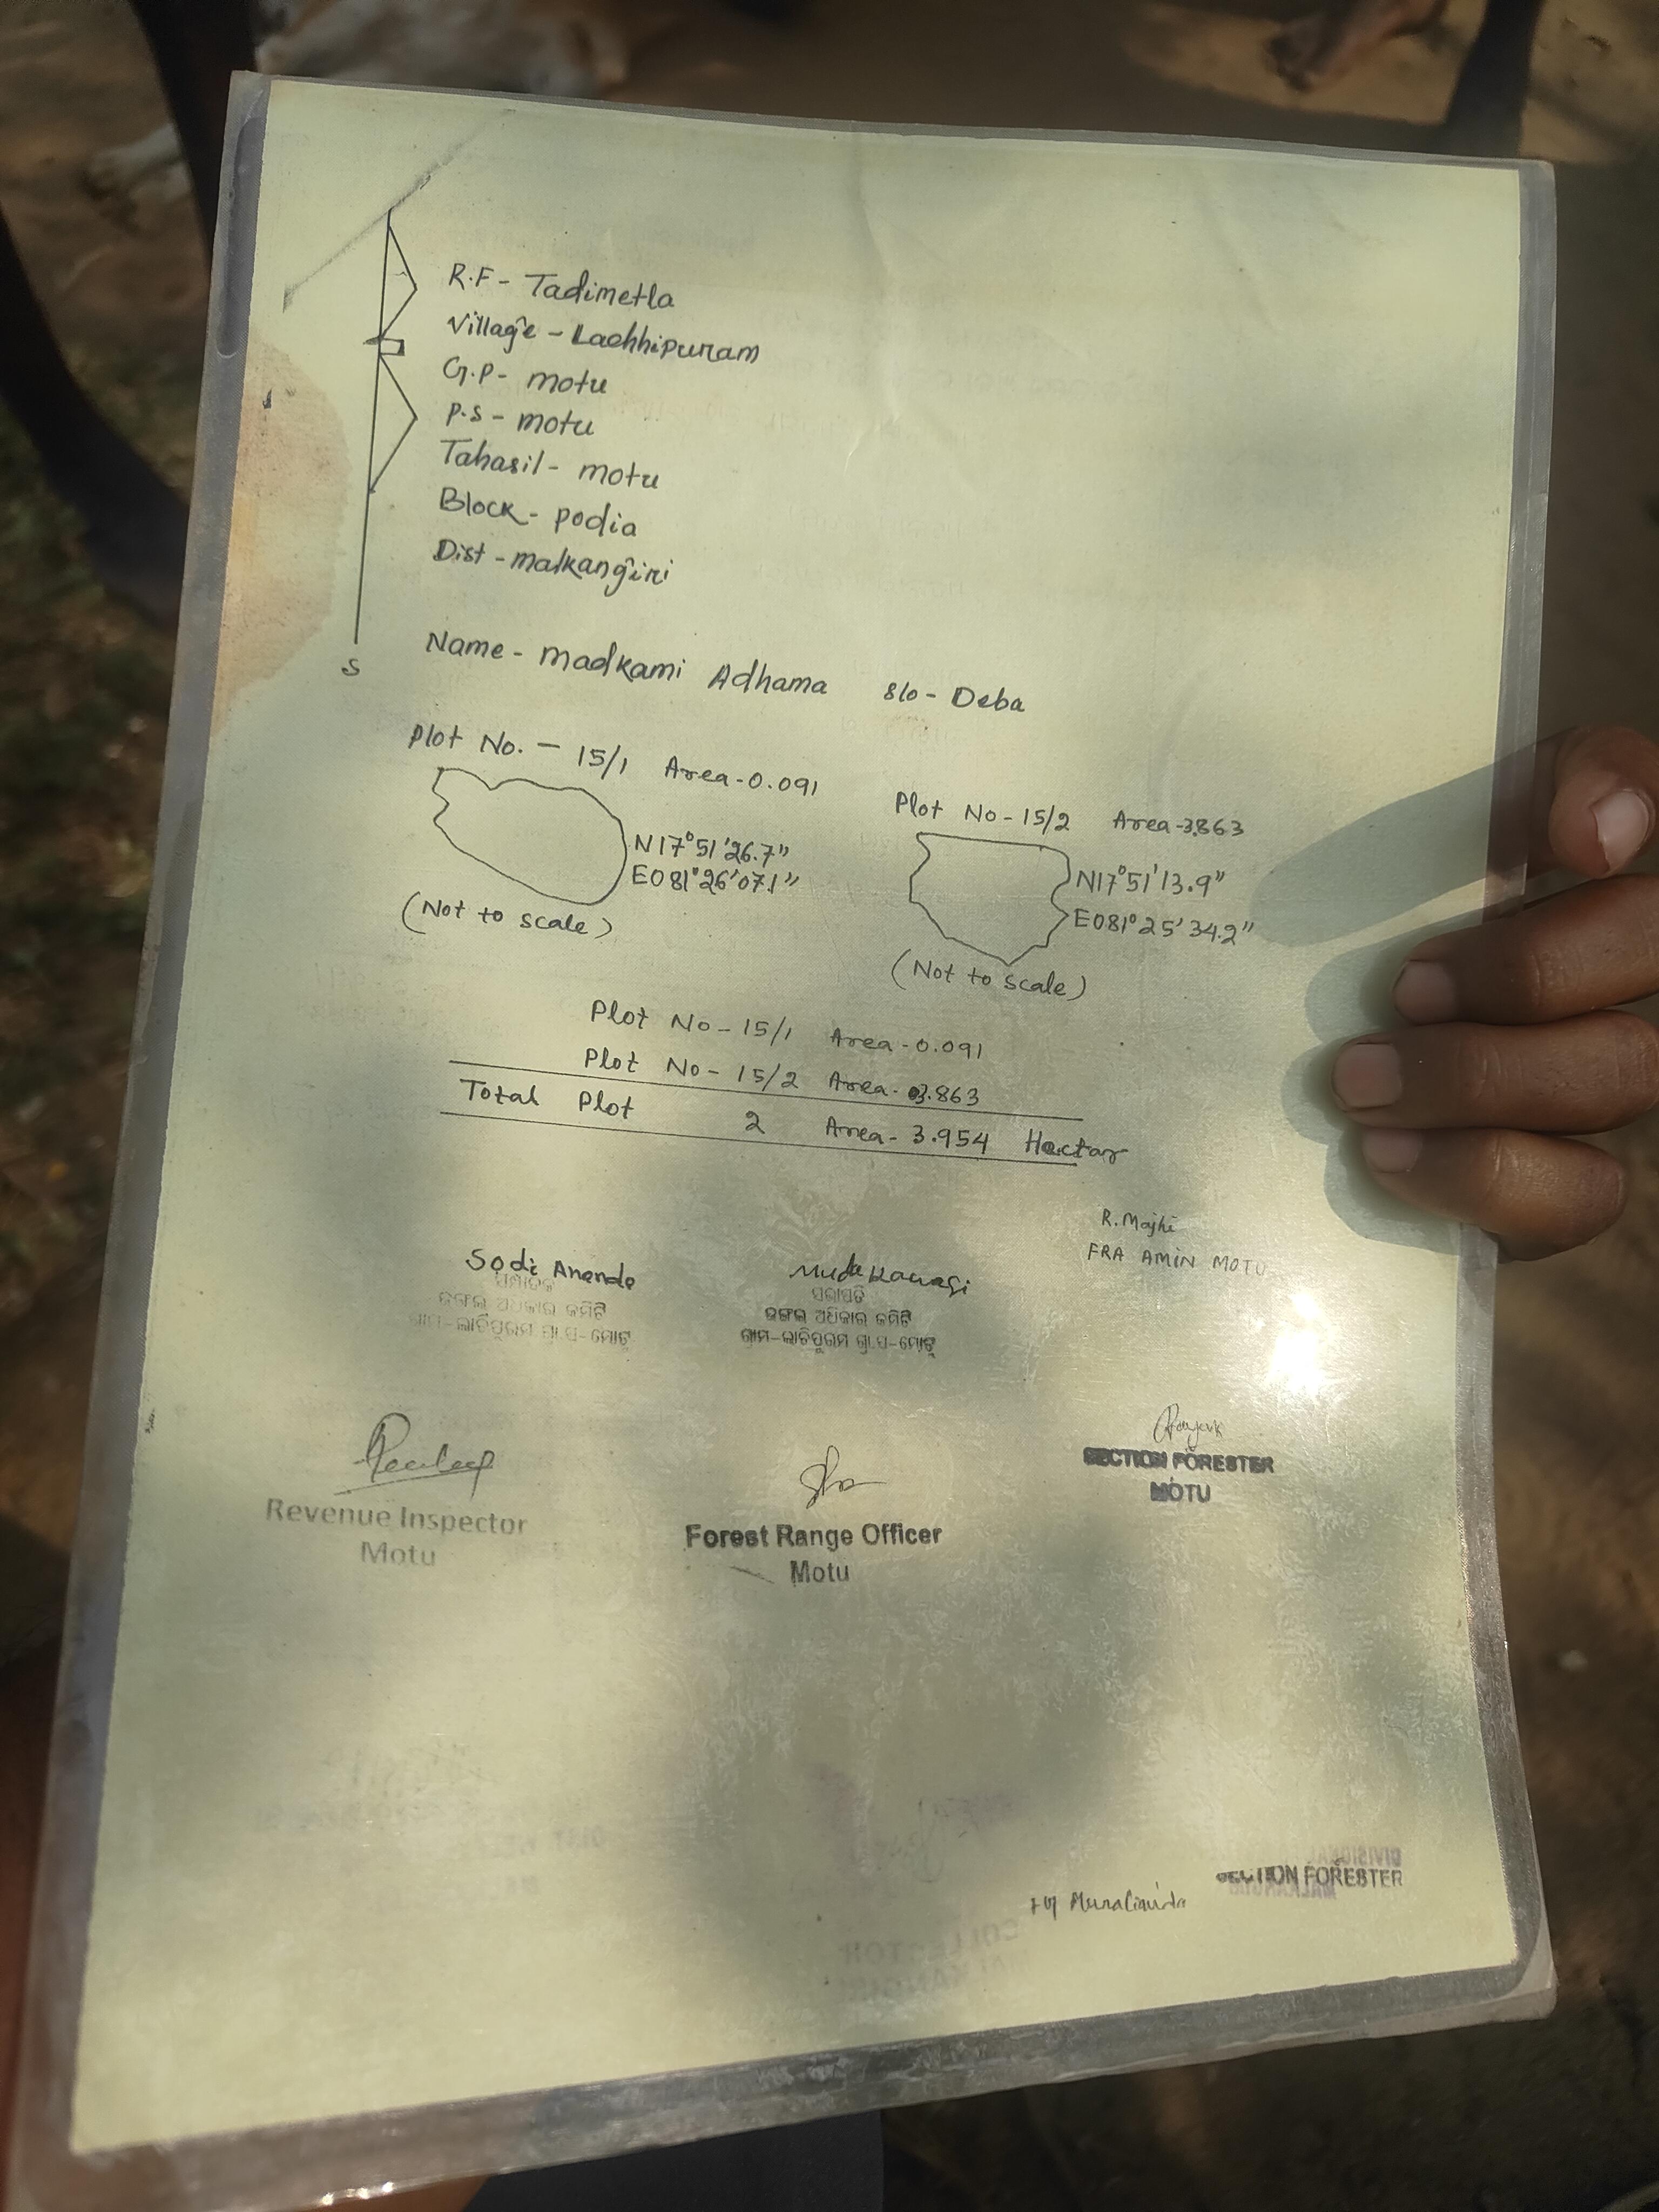 R.F - Tadimetla
Village - Lachhipuram
G.P - motu
P.S - motu
Tahasil - motu
Block - podia
Dist - malkangiri
S
Name - madkami Adhama S/o - Deba
Plot No. - 15/1 Area - 0.091
N17°51'26.7"
E081°26'07.1"
(Not to scale)
Plot No - 15/2 Area - 3.863
N17°51'13.9"
E081°25'34.2"
(Not to scale)
Plot No - 15/1 Area - 0.091
Plot No - 15/2 Area - 3.863
Total Plot 2 Area - 3.954 Hectar
R. Majhi
FRA AMIN MOTU
Sodi Ananda
ଜଙ୍ଗଲ ଅଧିକାର କମିଟି
ଗ୍ରାମ-ଲାଚିପୁରମ ଗ୍ରା.ପ-ମୋଟୁ
ସଭାପତି
ଜଙ୍ଗଲ ଅଧିକାର କମିଟି
ଗ୍ରାମ-ଲାଚିପୁରମ ଗ୍ରା.ପ-ମୋଟୁ
Revenue Inspector
Motu
Forest Range Officer
Motu
SECTION FORESTER
MOTU
SECTION FORESTER